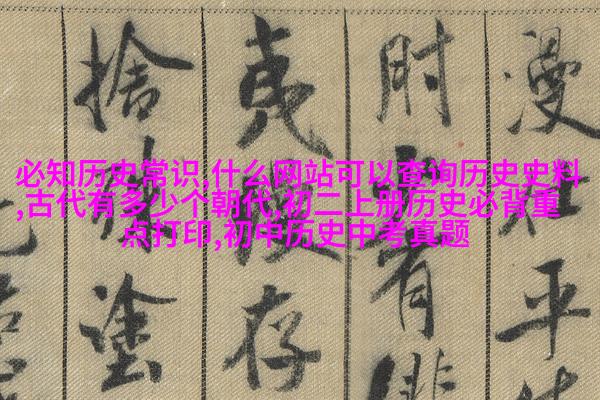 必知历史常识,什么网站可以查询历史史料
,古代有多少个朝代,初二上册历史必背重
点打印,初中历史中考真题
漫平
有
夷存
捨塗